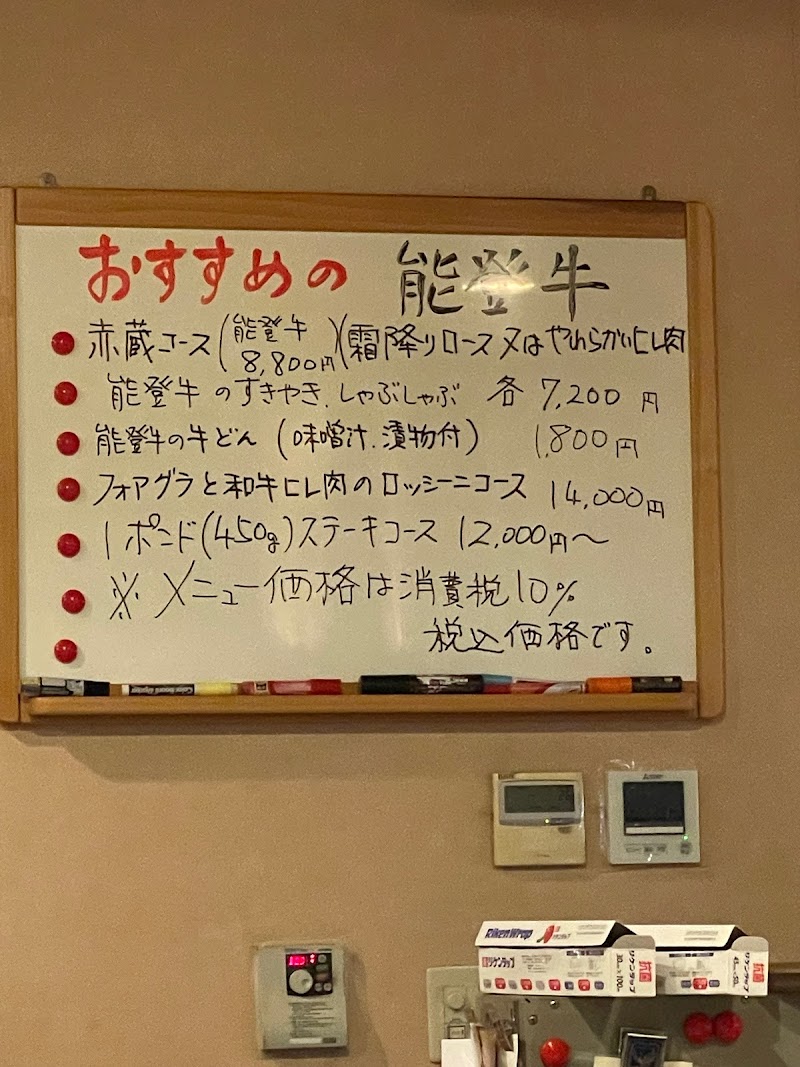 おすすめの 能登牛
赤蔵コース(能登牛 8,800円)(霜降りロース又はやわらかいヒレ肉
能登牛のすきやき.しゃぶしゃぶ 各 7,200円
能登牛の牛どん(味噌汁.漬物付) 1,800円
フォアグラと和牛ヒレ肉のロッシーニコース 14,000円
1ポンド(450g)ステーキコース 12,000円〜
※メニュー価格は消費税10%
税込価格です。
Riken Wrap
リケンラップ
抗菌
リケンラップ
30cm×100m
抗菌